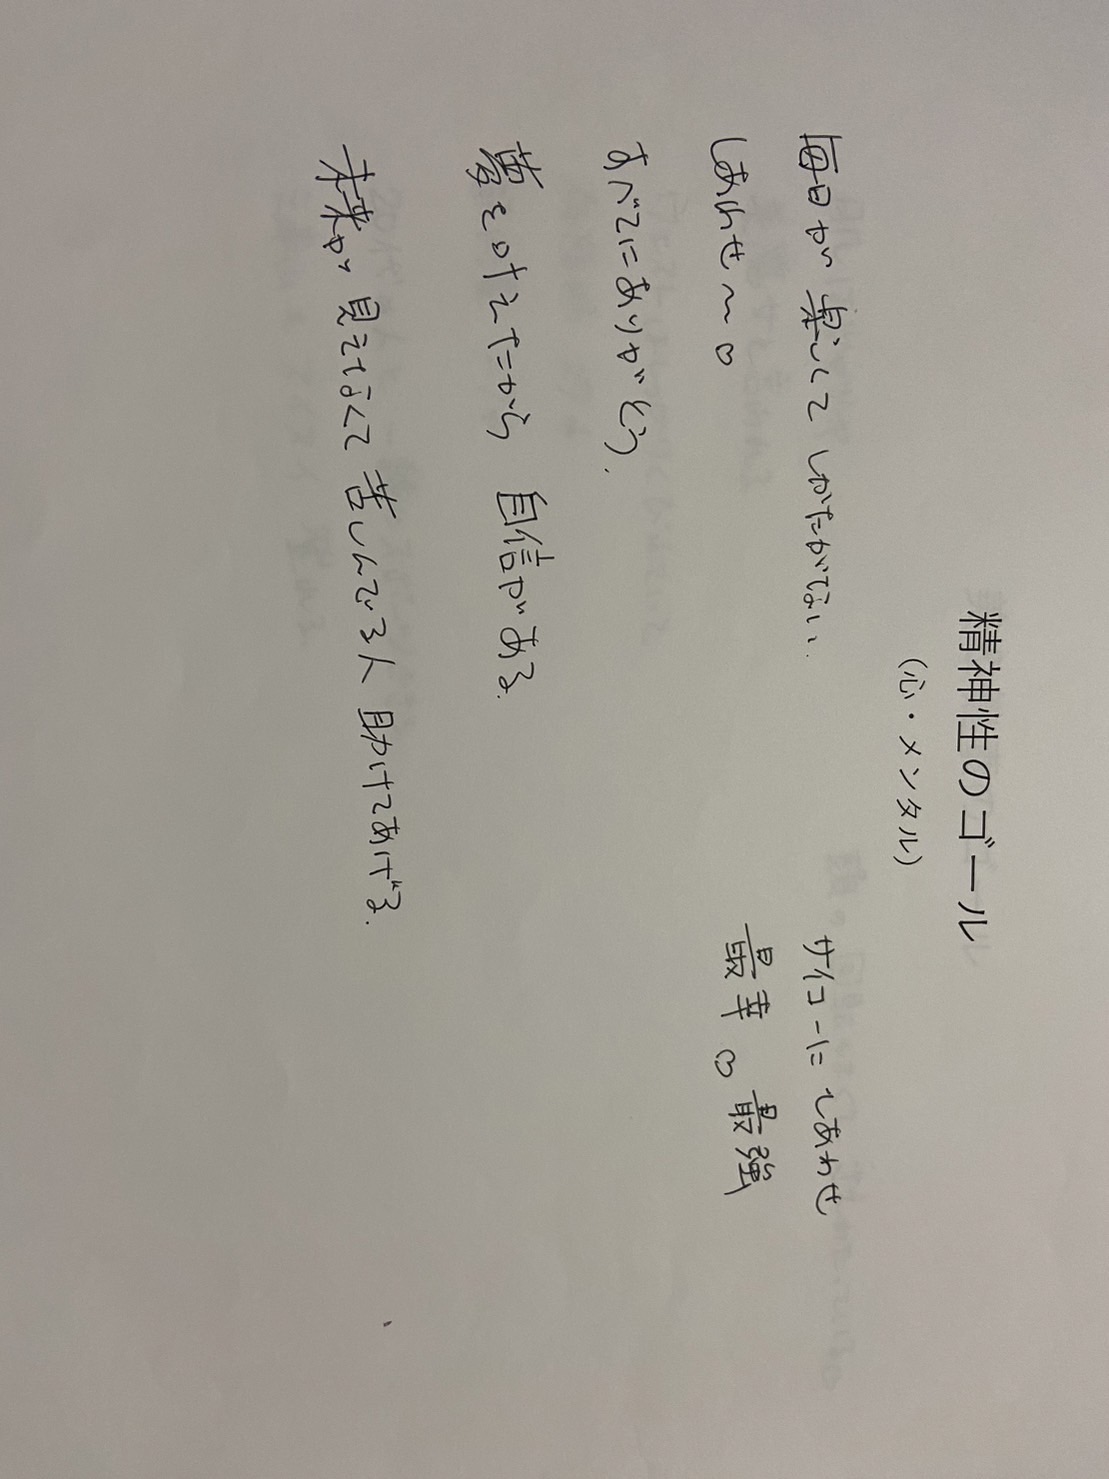 精神性のゴール
(心・メンタル)
毎日が楽しくてしかたがない.
しあわせ〜♡
すべてにありがとう.
夢を叶えたから 自信がある.
未来が見えなくて苦しんでいる人 助けてあげる.
サイコーにしあわせ
最幸♡最強